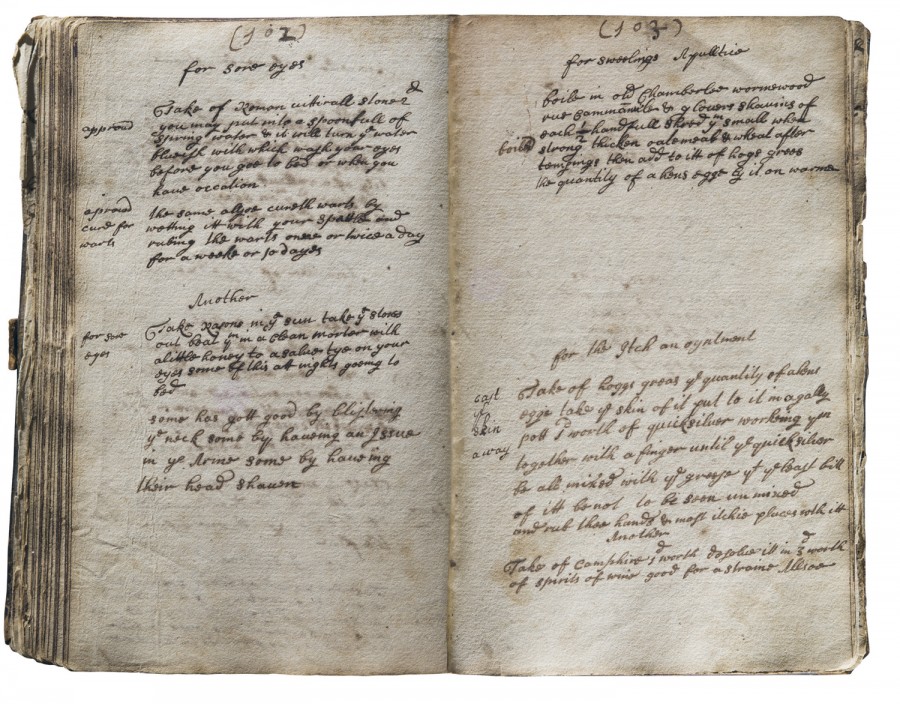 (102)
for sore eyes
Take of Roman vitirall stone 2 &
aproud
you may put into a spoonfull of
spring water & it will turn ye water
blueish with which wash your eyes
before you goe to bed or when you
have occation
aproud
cure for
warts
the same allsoe cureth warts by
wetting itt with your spettle and
rubing the warts once or twice a day
for a weeke or 10 dayes
Another
for sore
eyes
Take Rasons in ye sun take ye stones
out beat ym in a clean morter with
alittle honey to a salve tye on your
eyes some of this att nights goeing to
bed
some has gott good by blistring
ye neck some by haveing an Issue
in ye Arme some by haveing
their head shaven
(103)
for sweelings A pulltice
boile in old Chamberlee wormewood
rue & ye lovers shavins of
each 1/2 handfull shred ym small when
boild
strong thicken oatemeale & wheat after
temsings then add to itt of hogs grees
the quantity of a hens egge ly it on warme
for the Itch an oyntment
cast
ye
skin
away
Take of hoggs greas ye quantity of a hens
egge take ye skin of it put to it in a gally
pott 1d worth of quicksilver working ym
together with a finger untill ye quicksilver
be all mixed with ye grease yt ye least bitt
of itt be not to be seen unmixed
and rub thee hands & most itchie places with itt
Another
Take of Camphire 1d worth desolve itt in 3d worth
of spirits of wine good for a straine Allsoe